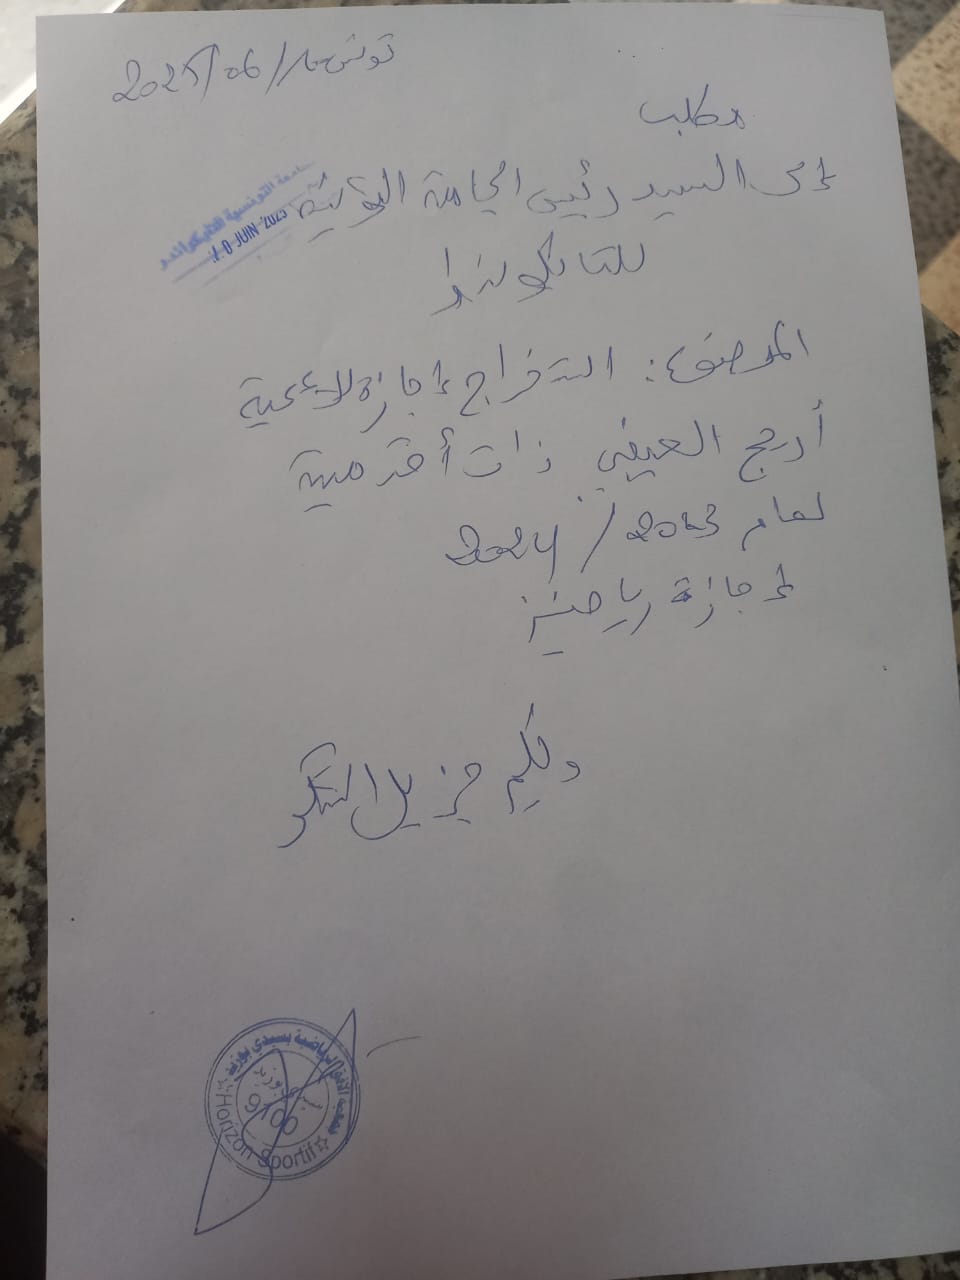 تونس في 10/06/2025
مطلب
إلى السيد رئيس الجامعة التونسية
للتايكواندو
الجامعة التونسية للتايكواندو
10 JUIN 2025
الموضوع: استخراج إجازة لاعبة
أريج العيفي ذات أقدمية
لعام 2023/2024
إجازة رياضية
ولكم جزيل الشكر
جمعية الأفق الرياضية بسيدي بوزيد
سيدي بوزيد
9100
Horizon Sportif